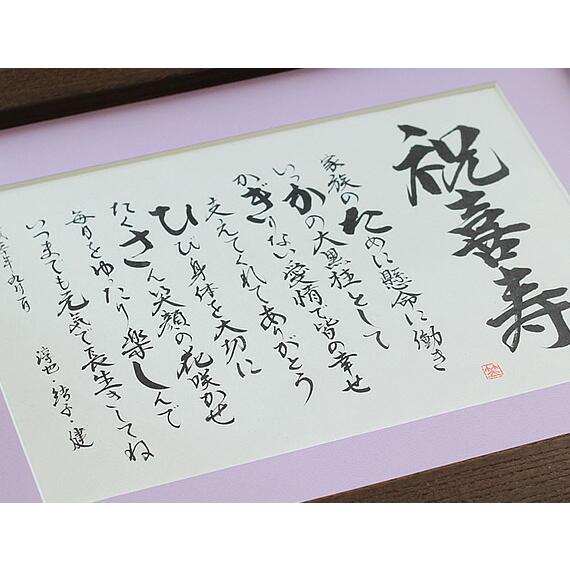 祝喜寿
家族のために懸命に働き
いっかの大黒柱として
かぎりない愛情で皆の幸せ
支えてくれてありがとう
ひび身体を大切に
たくさん笑顔の花咲かせ
毎日をゆったり楽しんで
いつまでも元気で長生きしてね
年九月
淳也・結子・健